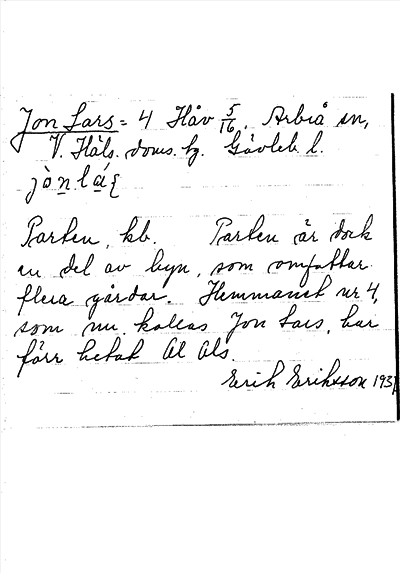 Jon Lars = 4 Håv 5/16. Arbrå sn,
V. Häls. doms. hg. Gävleb. l.
jò̀n lá{
Parken, kb. Parken är dock
en del av byn, som omfattar
flera gårdar. Hemmanet nr 4,
som nu kallas Jon Lars, har
förr hetat Ol Ols.
Erik Eriksson 1937